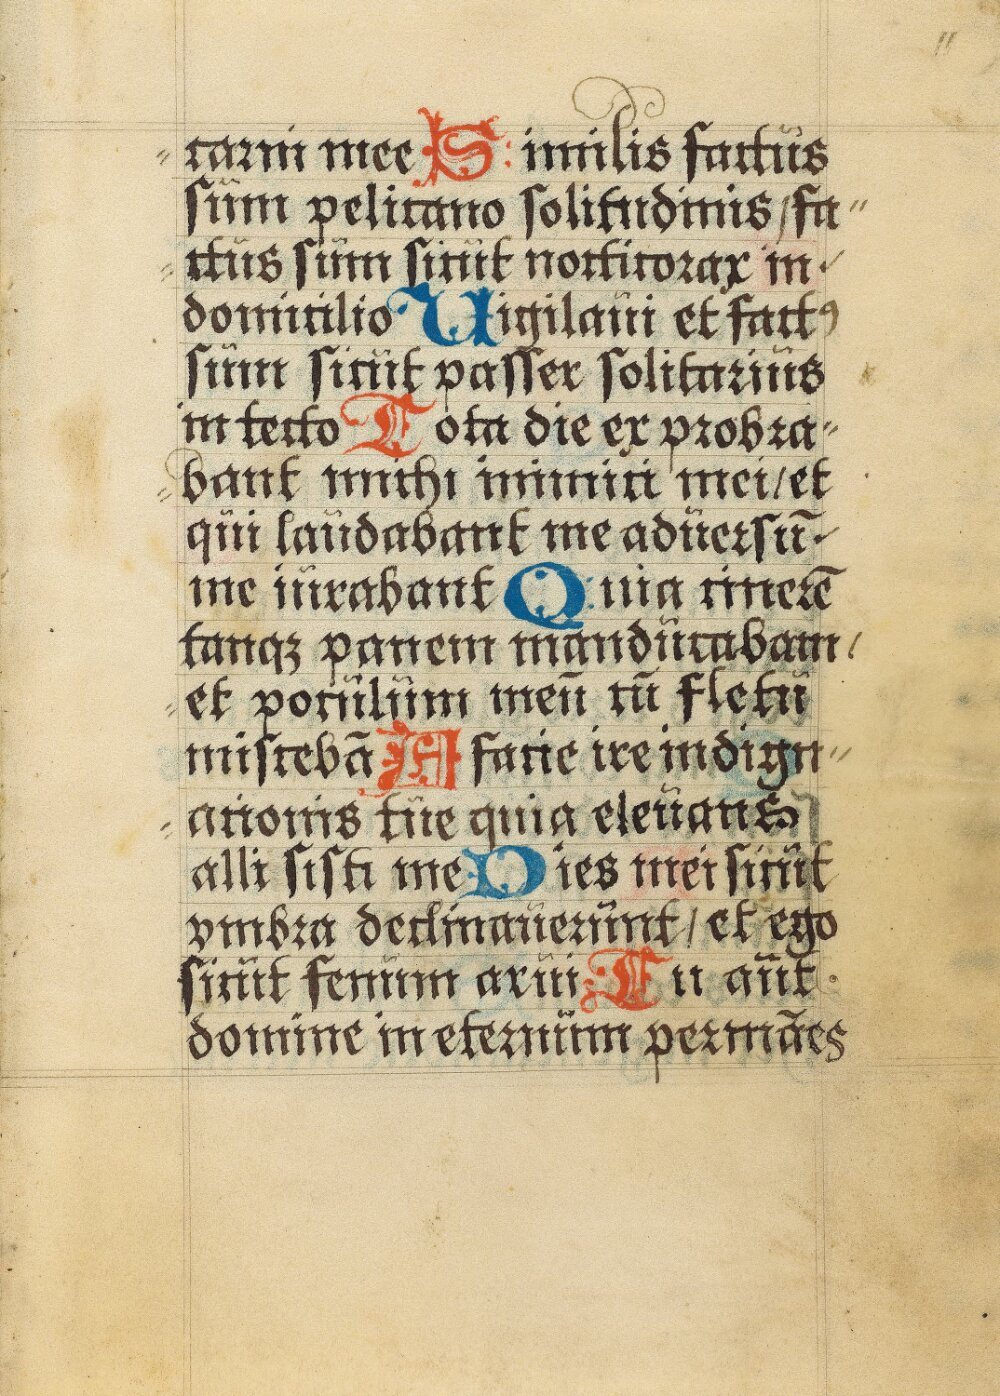 carni mee Similis factus
sum pelicano solitudinis / fa//
//ctus sum sicut nocticorax in/
domicilio Uigilaui et fact⁹
sum sicut passer solitarius
in tecto Tota die exprobra//
//bant michi inimici mei / et
qui laudabant me aduersū/
me iurabant Quia cinerē
tanqꝫ panem manducabam /
et poculum meū cū fletu
miscebā A facie ire indign//
//ationis tue quia eleuans
alli sisti me Dies mei sicut
vmbra declinauerunt / et ego
sicut fenum arui Tu aūt
domine in eternum permāes